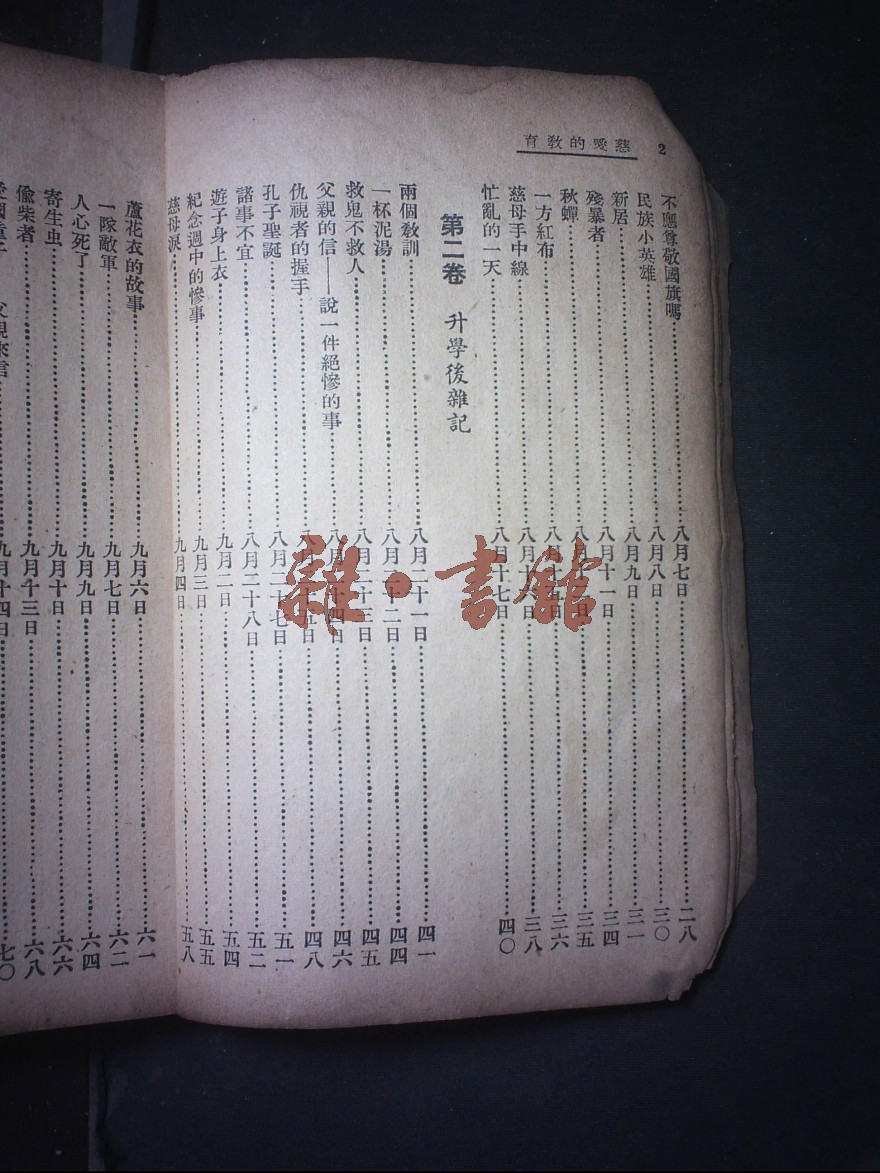 2 慈愛的敎育
不應尊敬國旗嗎……八月七日……二八
民族小英雄……八月八日……三〇
新居……八月九日……三一
殘暴者……八月十一日……三四
秋蟬……八月十……三五
一方紅布……八月十五日……三六
慈母手中線……八月十六日……三八
忙亂的一天……八月十七日……四〇
第二卷 升學後雜記
兩個敎訓……八月二十一日……四一
一杯泥湯……八月二十二日……四四
救鬼不救人……八月二十三日……四五
父親的信——說一件絕慘的事……八月二十四日……四六
仇視者的握手……八月二十五日……四八
孔子聖誕……八月二十七日……五一
諸事不宜……八月二十八日……五二
遊子身上衣……九月二日……五四
紀念週中的慘事……九月三日……五五
慈母淚……九月四日……五八
蘆花衣的故事……九月六日……六一
一隊敵軍……九月七日……六二
人心死了……九月九日……六四
寄生虫……九月十日……六六
偸柴者……九月十三日……六八
父親來信……九月十四日……七〇
雜·書館